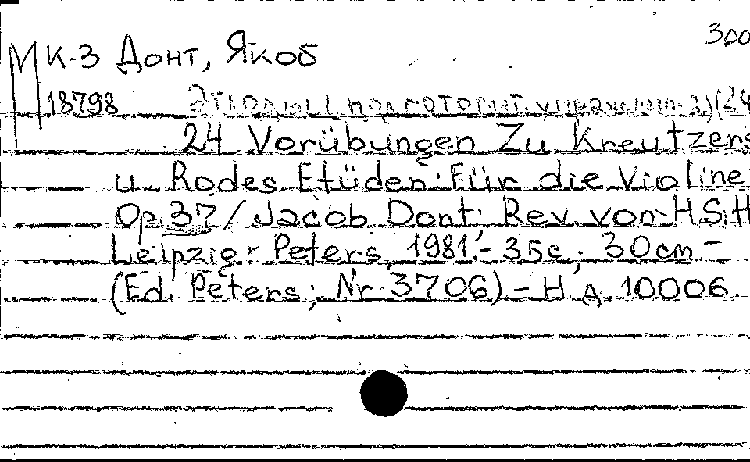 300
МК-3 Донт, Якоб
18798 Этюды (подготовит. упражнения) (24
24 Vorübungen Zu Kreutzers
u. Rodes Etüden: Für die Violine
Op. 37 / Jacob Dont: Rev. von H.S.H
Leipzig: Peters, 1981. - 35c.; 30cm -
(Ed. Peters; Nr. 3706). - Н.д. 10006